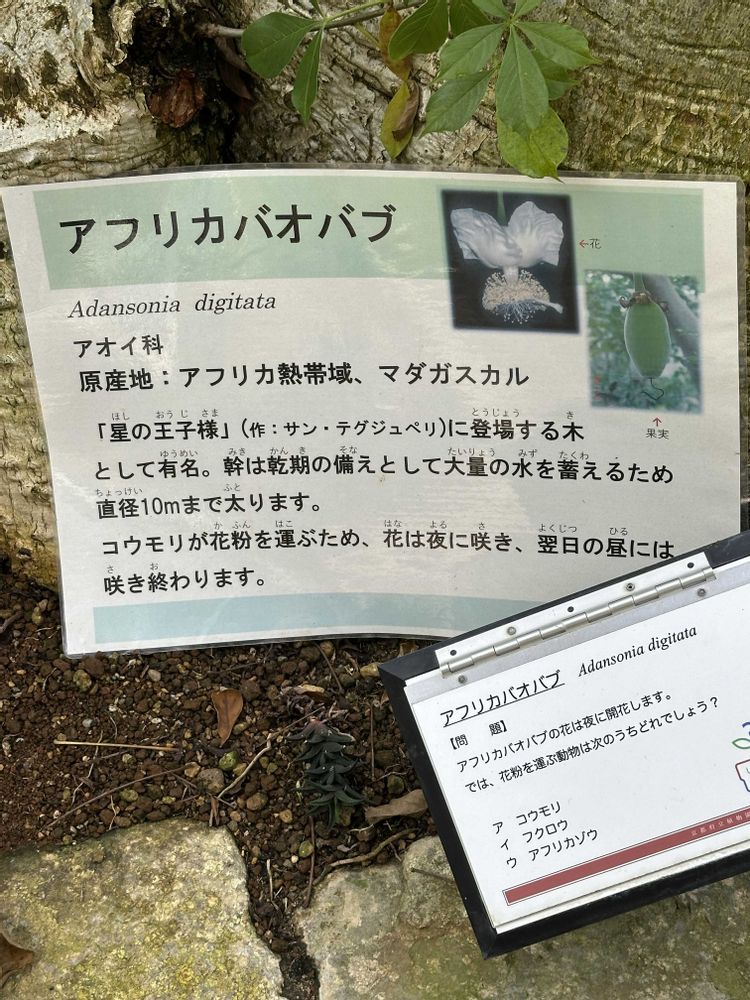 アフリカバオバブ
←花
Adansonia digitata
アオイ科
原産地：アフリカ熱帯域、マダガスカル
↑
果実
「星の王子様」(作：サン・テグジュペリ)に登場する木
として有名。幹は乾期の備えとして大量の水を蓄えるため
直径10mまで太ります。
コウモリが花粉を運ぶため、花は夜に咲き、翌日の昼には
咲き終わります。
アフリカバオバブ Adansonia digitata
【問　題】
アフリカバオバブの花は夜に開花します。
では、花粉を運ぶ動物は次のうちどれでしょう？
ア コウモリ
イ フクロウ
ウ アフリカゾウ
京都府立植物園